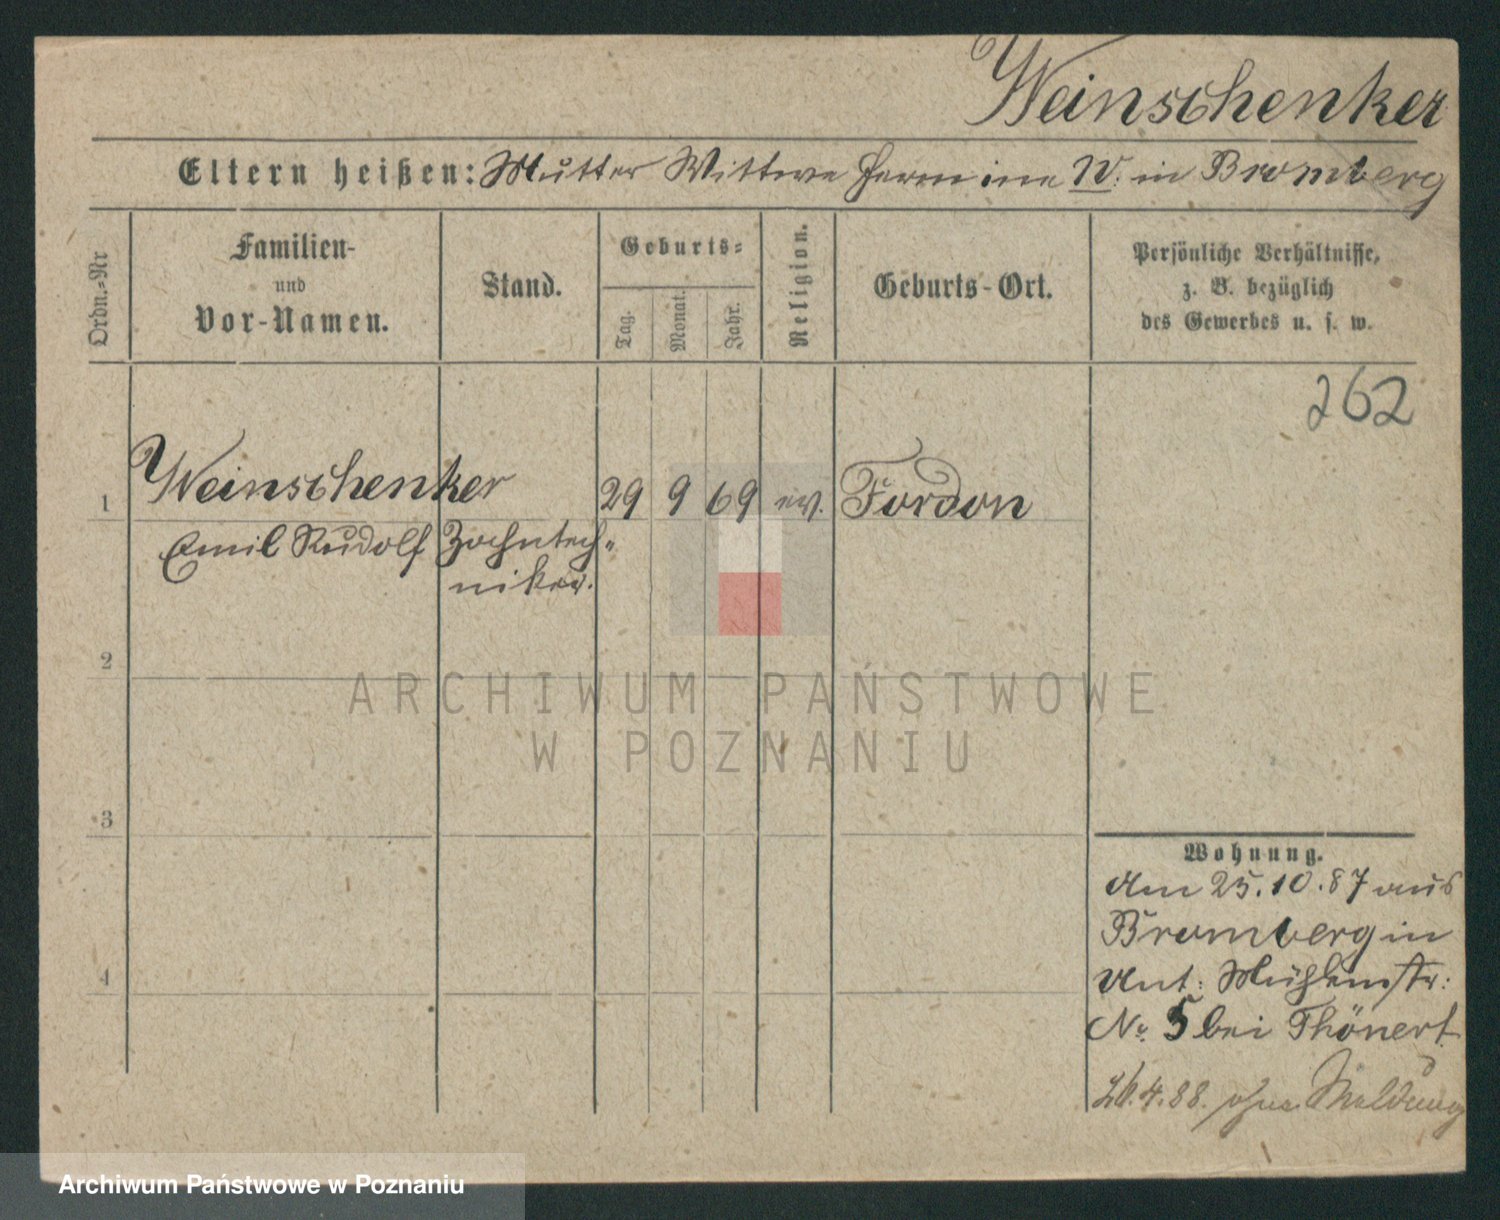 Weinschenker
Eltern heißen: Mutter Wittwe Hermine W. in Bromberg
Ordn.-Nr
Familien-
und
Vor-Namen.
Stand.
Geburts-
Tag.
Monat.
Jahr.
Religion.
Geburts-Ort.
Persönliche Verhältnisse,
z. B. bezüglich
des Gewerbes u. s. w.
262
1 Weinschenker 29 9 69 ev. Fordon
Emil Rudolf Zahntech-
niker.
2
ARCHIWUM PAŃSTWOWE
W POZNANIU
3
Wohnung.
Am 25.10.87 aus
Bromberg in
Unt: Mühlenstr:
No. 5 bei Thönert
4
26.4.88. ohne Meldung
Archiwum Państwowe w Poznaniu